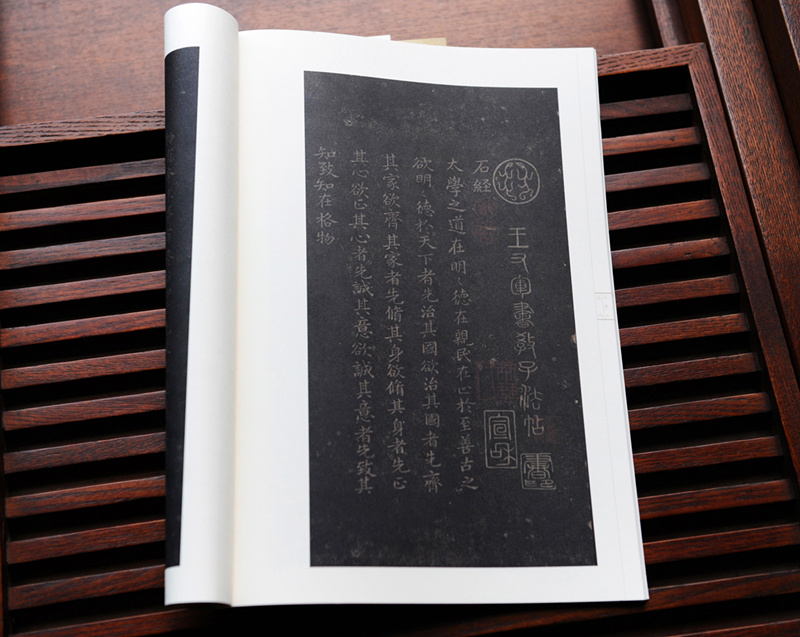 王又軍書教子法帖
宣和
石経
太學之道在明〻德在親民在止於至善古之
欲明〻德於天下者先治其國欲治其國者先齊
其家欲齊其家者先脩其身欲脩其身者先正
其心欲正其心者先誠其意欲誠其意者先致其
知致知在格物